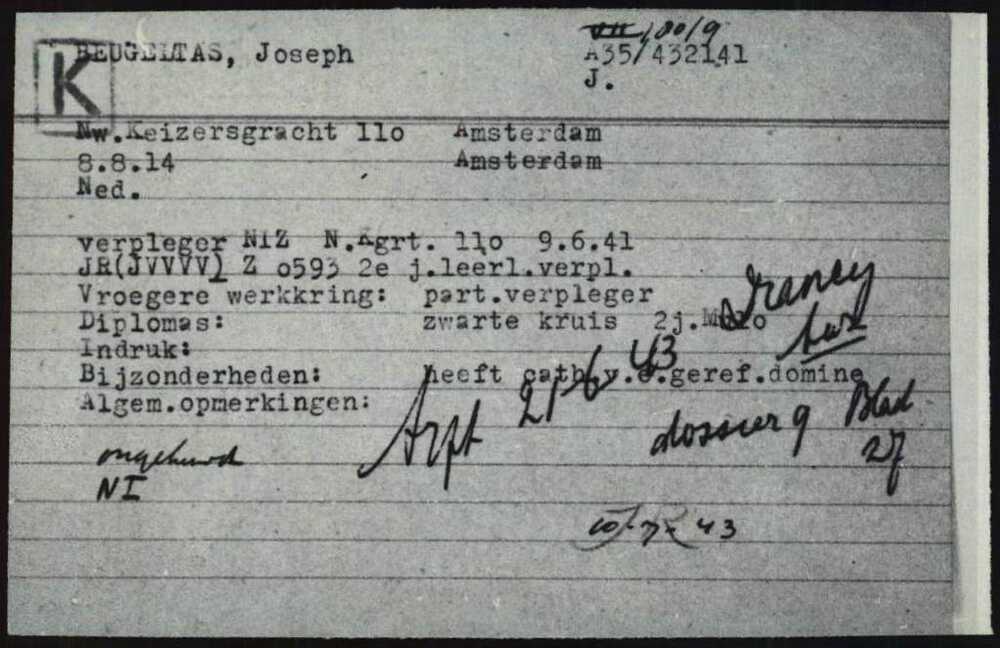 K
BEUGELTAS, Joseph
VII/80/9
A35/432141
J.
Nw.Keizersgracht 11o Amsterdam
8.8.14 Amsterdam
Ned.
verpleger NIZ N.Kgrt. 11o 9.6.41
JR(JVVVV) Z o593 2e j.leerl.verpl.
Vroegere werkkring: part.verpleger
Diplomas: zwarte kruis 2j.
Indruk:
Bijzonderheden: heeft cath.v.e.geref.domine
Algem.opmerkingen:
21-6 43
dossier 9 Blad
27
ongehuwd
NI
43